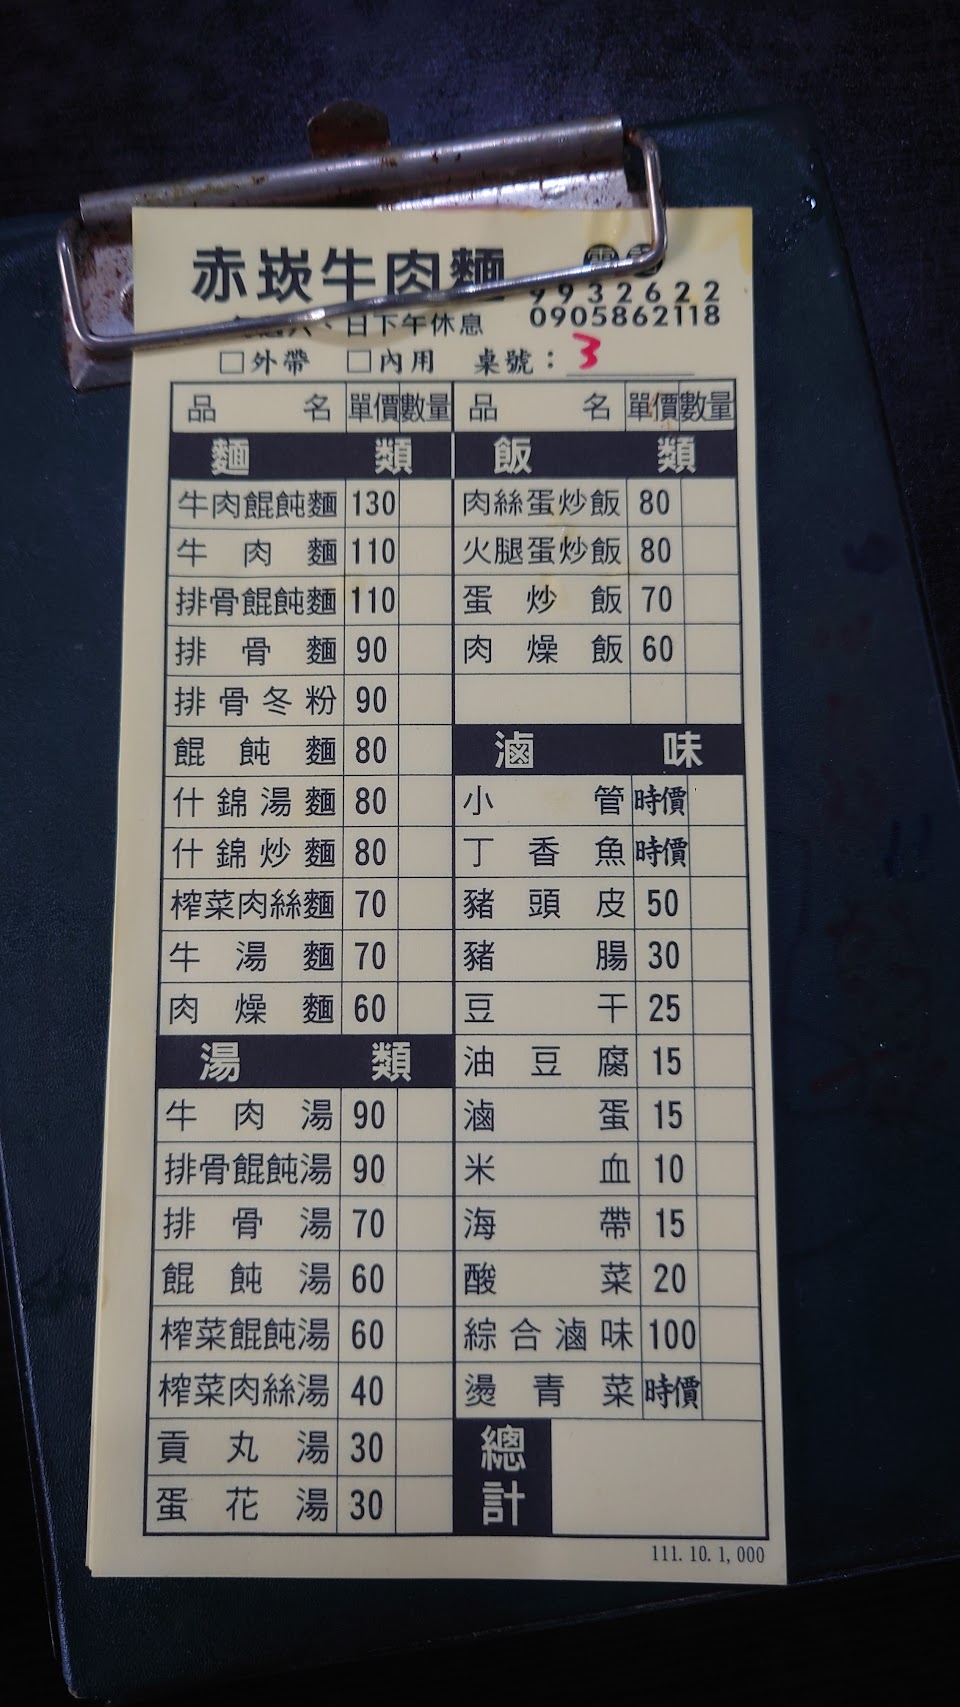 赤崁牛肉麵
電話
9932622
0905862118
日下午休息
□外帶 □內用 桌號：3
品名 單價 數量
麵類
牛肉餛飩麵 130
牛肉麵 110
排骨餛飩麵 110
排骨麵 90
排骨冬粉 90
餛飩麵 80
什錦湯麵 80
什錦炒麵 80
榨菜肉絲麵 70
牛湯麵 70
肉燥麵 60
湯類
牛肉湯 90
排骨餛飩湯 90
排骨湯 70
餛飩湯 60
榨菜餛飩湯 60
榨菜肉絲湯 40
貢丸湯 30
蛋花湯 30
品名 單價 數量
飯類
肉絲蛋炒飯 80
火腿蛋炒飯 80
蛋炒飯 70
肉燥飯 60
滷味
小管 時價
丁香魚 時價
豬頭皮 50
豬腸 30
豆干 25
油豆腐 15
滷蛋 15
米血 10
海帶 15
酸菜 20
綜合滷味 100
燙青菜 時價
總計
111.10.1,000